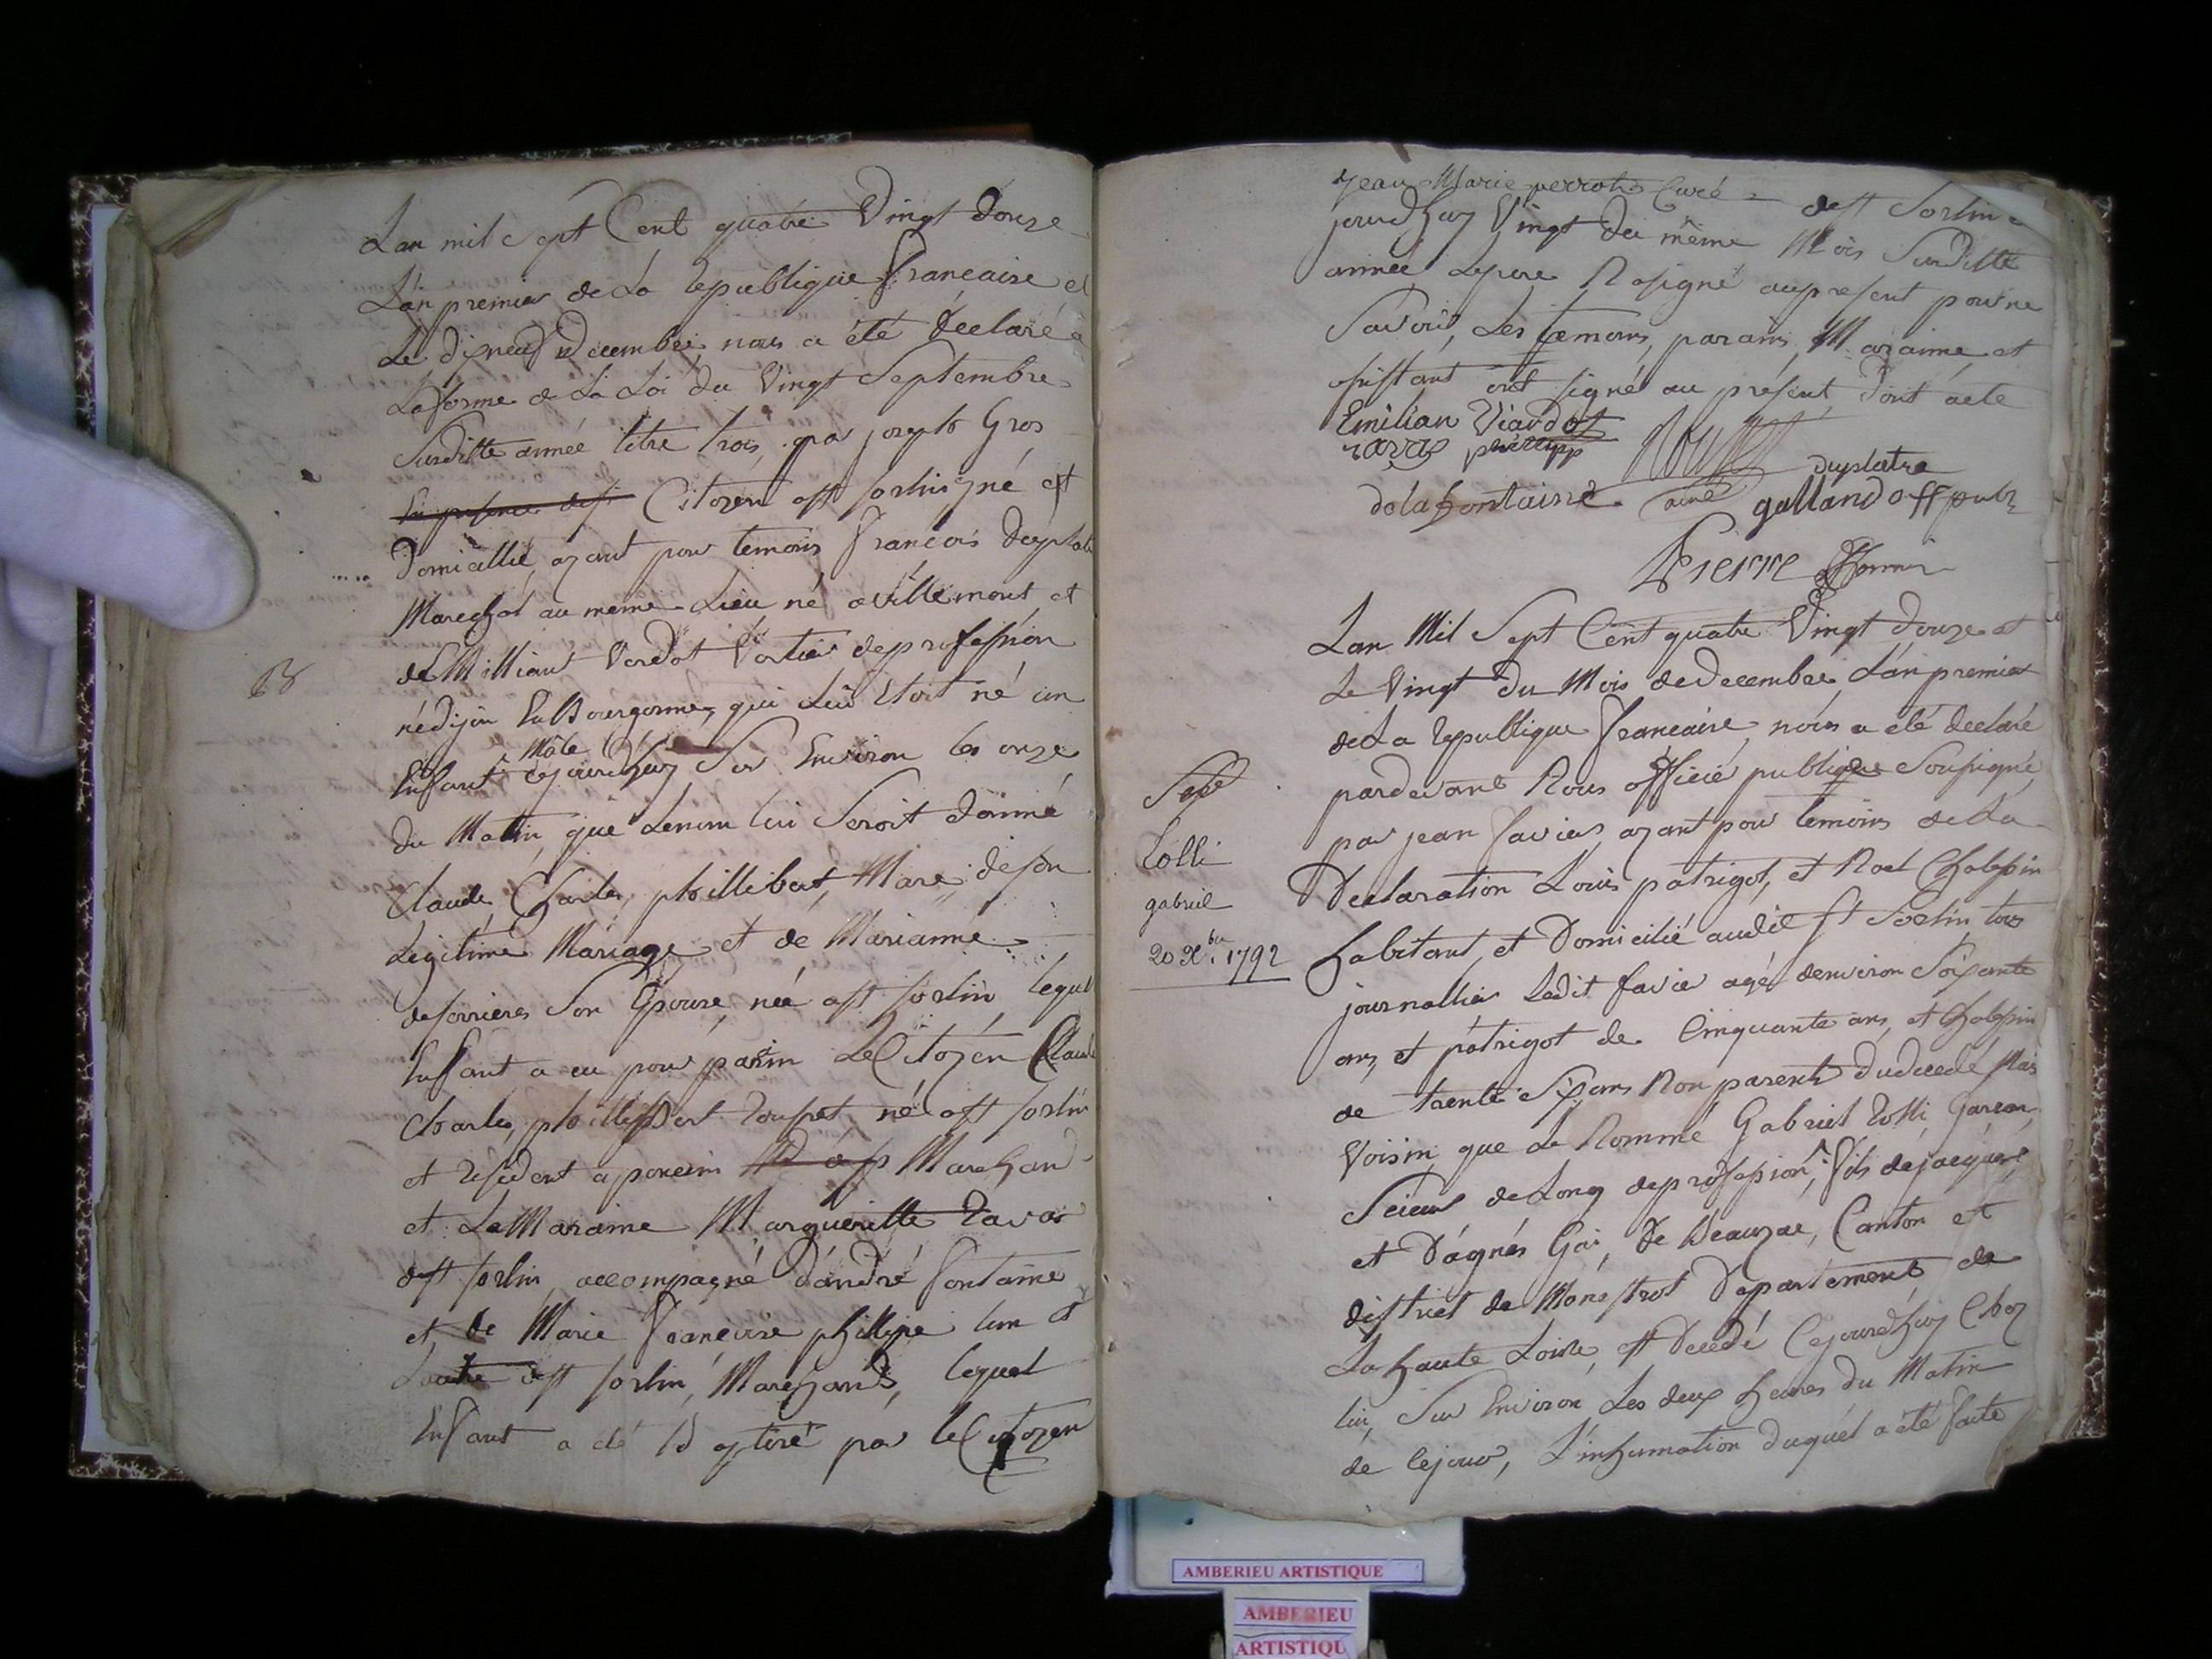 Lan mil Sept Cent quatre Vingt douze
L'an premier de La Republique Francaise et
Le dixneuf Decembre nous a été Declaré a
La forme de La Loi du Vingt Septembre
Susditte année titre trois, par joseph Gros
Citoyen a st Sorlin y né et
Domicillié, ayant pour temoins Francois
Marechal au même Lieu né a Villemont et
de Millian Verdot de profession
né dijon En Bourgogne, qui Lui Etoit né un
Enfant Mâle Cejourdhuy Sur Environ les onze
du Matin, que Lenom lui Seroit donné
Claude, Charles, phillibert, de son
Legitime Mariage et de Marianne
deserrieres Son Epouse, née a st Sorlin, lequel
Enfant a eu pour parin Le Citoyen Claude
Charles, phillibert Roupet né a st sorlin
et Resident a poncin Marchand
et La Maraine Margueritte Ravas
de st sorlin, accompagné d'andré Fontaine
et de Marie Francoise phillipe lun et
Lautre de st sorlin, Marchands, lequel
Enfant a eté Baptisé par le Citoyen
jean Marie perrot Curé de st Sorlin
jourdhuy Vingt du même Mois Susditte
année Lepere N'a signé au present pour ne
Savoir, Les temoins, parains, Maraine, et
assistant ont signé au présent, dont acte
Emilian Viardot
ravas
duplatre
delafontaine
ainé
galland off pub
Pierre
Lan Mil Sept Cent quatre Vingt douze et
Le Vingt du Mois de Decembre L'an premier
de La Republique Francaise, nous a été declaré
pardevant Nous officié publique Soussigné,
par jean Favier, ayant pour temoins de La
Declaration Louis patrigot, et Noel Chalessin
habitant, et Domicilié audit st Sorlin, tous
journallier Ledit favier agé denviron Soixante
ans, et patrigot de Cinquante ans, et Chalessin
de trente Six ans Non parents du decedé Mais
Voisin, que Le Nommé Gabriel Rolli Garcon,
Scieur de Long de profession, Fils de jacques
et D'agnés Gai, de Beauzac, Canton et
district de Monistrol Departement de
La haute Loire, est Decedé Cejourdhuy Chez
lui, Sur Environ Les deux heures du Matin
de Cejour, L'inhumation duquel a été faite
Sepe
Rolli
gabriel
20 Xbre 1792
AMBERIEU ARTISTIQUE
AMBERIEU
ARTISTIQU